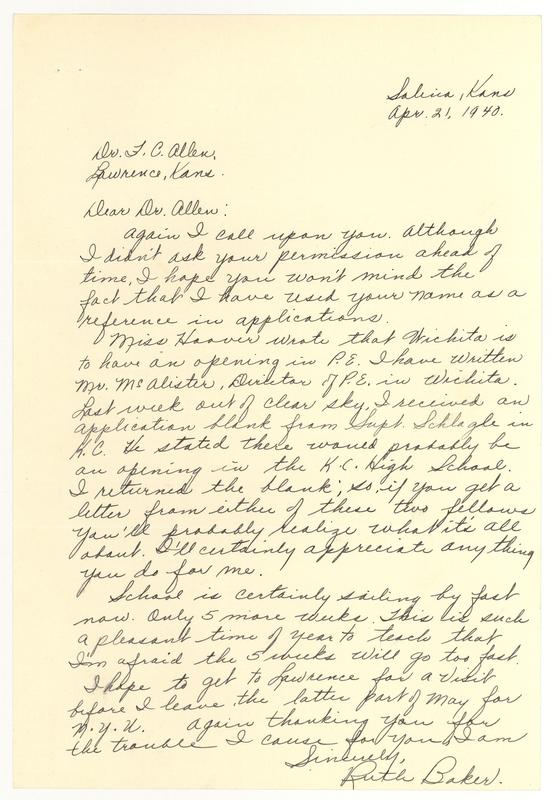 Salina, Kans
Apr. 21, 1940.
Dr. F. C. Allen,
Lawrence, Kans.
Dear Dr. Allen:
Again I call upon you. Although
I didn't ask your permission ahead of
time, I hope you won't mind the
fact that I have used your name as a
reference in applications.
Miss Hoover wrote that Wichita is
to have an opening in P.E. I have written
Mr. McAlister, Director of P.E. in Wichita.
Last week out of clear sky, I received an
application blank from Supt. Schlagle in
K.C. He stated there would probably be
an opening in the K.C. High School.
I returned the blank; so, if you get a
letter from either of these two fellows
you'll probably realize what it's all
about. I'll certainly appreciate anything
you do for me.
School is certainly sailing by fast
now. Only 5 more weeks. This is such
a pleasant time of year to teach that
I'm afraid the 5 weeks will go too fast.
I hope to get to Lawrence for a visit
before I leave the latter part of May for
N.Y.U. Again thanking you for
the trouble I cause for you, I am
Sincerely,
Ruth Baker.